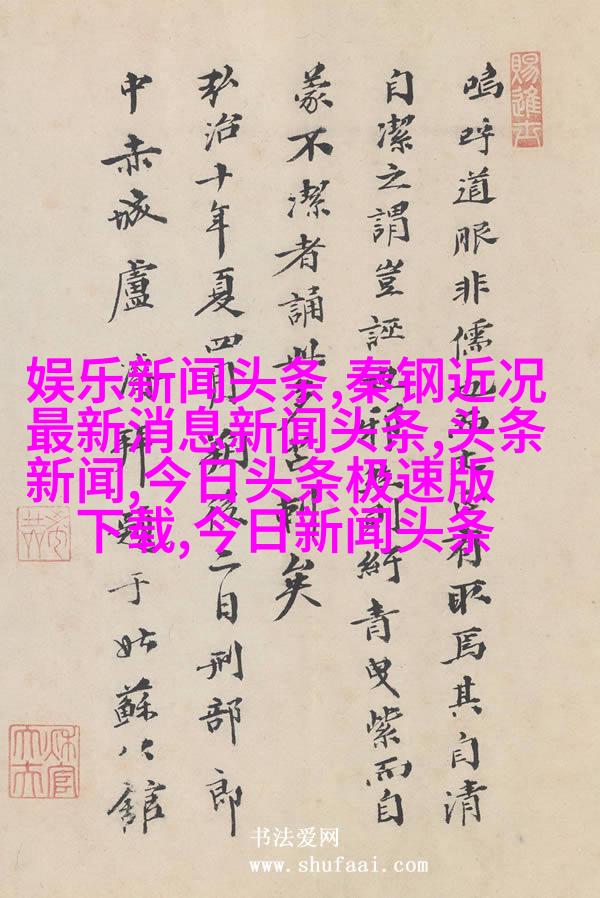 娱乐新闻头条,秦钢近况
最新消息新闻头条,头条
新闻,今日头条极速版
下载,今日新闻头条
賜進士
嗚呼道服非儒也有取焉其自清
自潔之謂豈誣則紆青曳紫而自
蒙不潔者誦此矣
弘治十年夏四月後二日刑部郎
中赤城盧濬拜題于姑蘇公館
书法爱网
www.shufaai.com